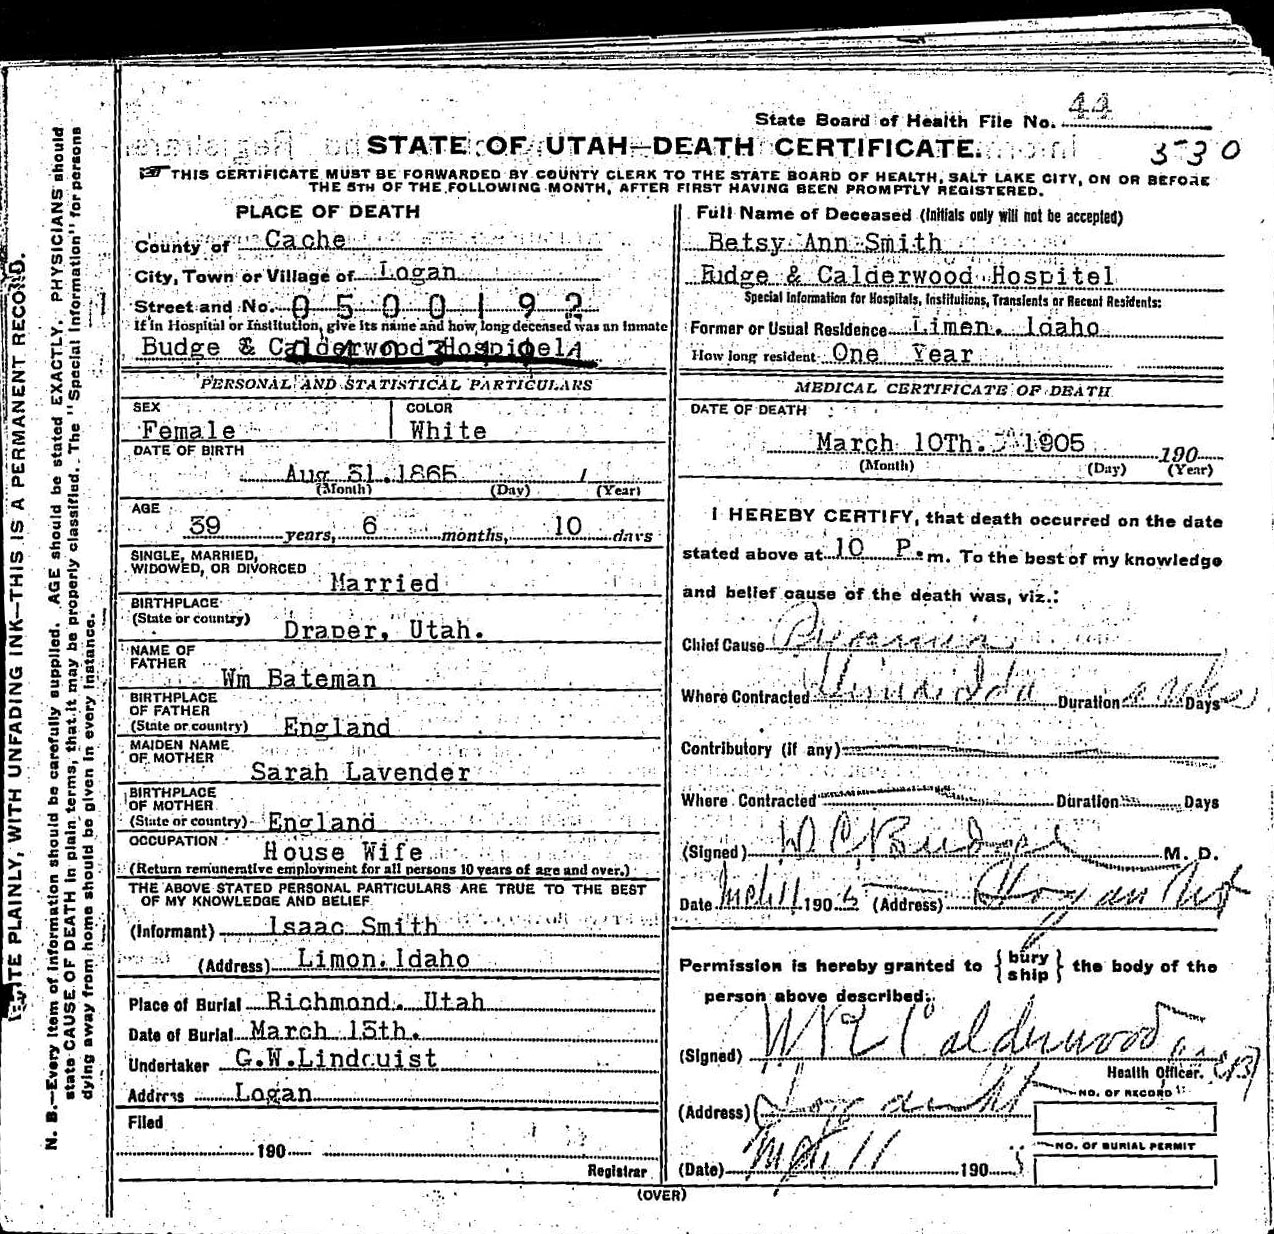 State Board of Health File No. 44
STATE OF UTAH—DEATH CERTIFICATE.
530
THIS CERTIFICATE MUST BE FORWARDED BY COUNTY CLERK TO THE STATE BOARD OF HEALTH, SALT LAKE CITY, ON OR BEFORE
THE 5TH OF THE FOLLOWING MONTH, AFTER FIRST HAVING BEEN PROMPTLY REGISTERED.
PLACE OF DEATH
County of Cache
City, Town or Village of Logan
Street and No. 0500192
If in Hospital or Institution, give its name and how long deceased was an inmate
Budge & Calderwood Hospitel
PERSONAL AND STATISTICAL PARTICULARS
SEX
Female
COLOR
White
DATE OF BIRTH
Aug 31. 1865
(Month) (Day) (Year)
AGE
39 years, 6 months, 10 days
SINGLE, MARRIED,
WIDOWED, OR DIVORCED
Married
BIRTHPLACE
(State or country)
Draper, Utah.
NAME OF
FATHER
Wm Bateman
BIRTHPLACE
OF FATHER
(State or country) England
MAIDEN NAME
OF MOTHER
Sarah Lavender
BIRTHPLACE
OF MOTHER
(State or country) England
OCCUPATION
House Wife
(Return remunerative employment for all persons 10 years of age and over.)
THE ABOVE STATED PERSONAL PARTICULARS ARE TRUE TO THE BEST
OF MY KNOWLEDGE AND BELIEF
(Informant) Isaac Smith
(Address) Limon. Idaho
Place of Burial Richmond. Utah
Date of Burial March 13th.
Undertaker G.W.Lindquist
Address Logan
Filed
190
Registrar
Full Name of Deceased (Initials only will not be accepted)
Betsy Ann Smith
Budge & Calderwood Hospitel
Special Information for Hospitals, Institutions, Transients or Recent Residents:
Former or Usual Residence Limen. Idaho
How long resident One Year
MEDICAL CERTIFICATE OF DEATH
DATE OF DEATH
March 10Th. 1905 190
(Month) (Day) (Year)
I HEREBY CERTIFY, that death occurred on the date
stated above at 10 P. m. To the best of my knowledge
and belief cause of the death was, viz.:
Chief Cause
Where Contracted Ida Duration Days
Contributory (if any)
Where Contracted Duration Days
(Signed) D C Budge M. D.
Date Mch 11 1905 (Address) Logan Ut
Permission is hereby granted to { bury ship } the body of the
person above described.
(Signed) Calderwood
Health Officer.
(Address) Logan Ut
NO. OF RECORD
NO. OF BURIAL PERMIT
(Date) Mch 11 1905
(OVER)
WRITE PLAINLY, WITH UNFADING INK—THIS IS A PERMANENT RECORD.
N. B.—Every item of information should be carefully supplied. AGE should be stated EXACTLY. PHYSICIANS should
state CAUSE OF DEATH in plain terms, that it may be properly classified. The "Special Information" for persons
dying away from home should be given in every instance.